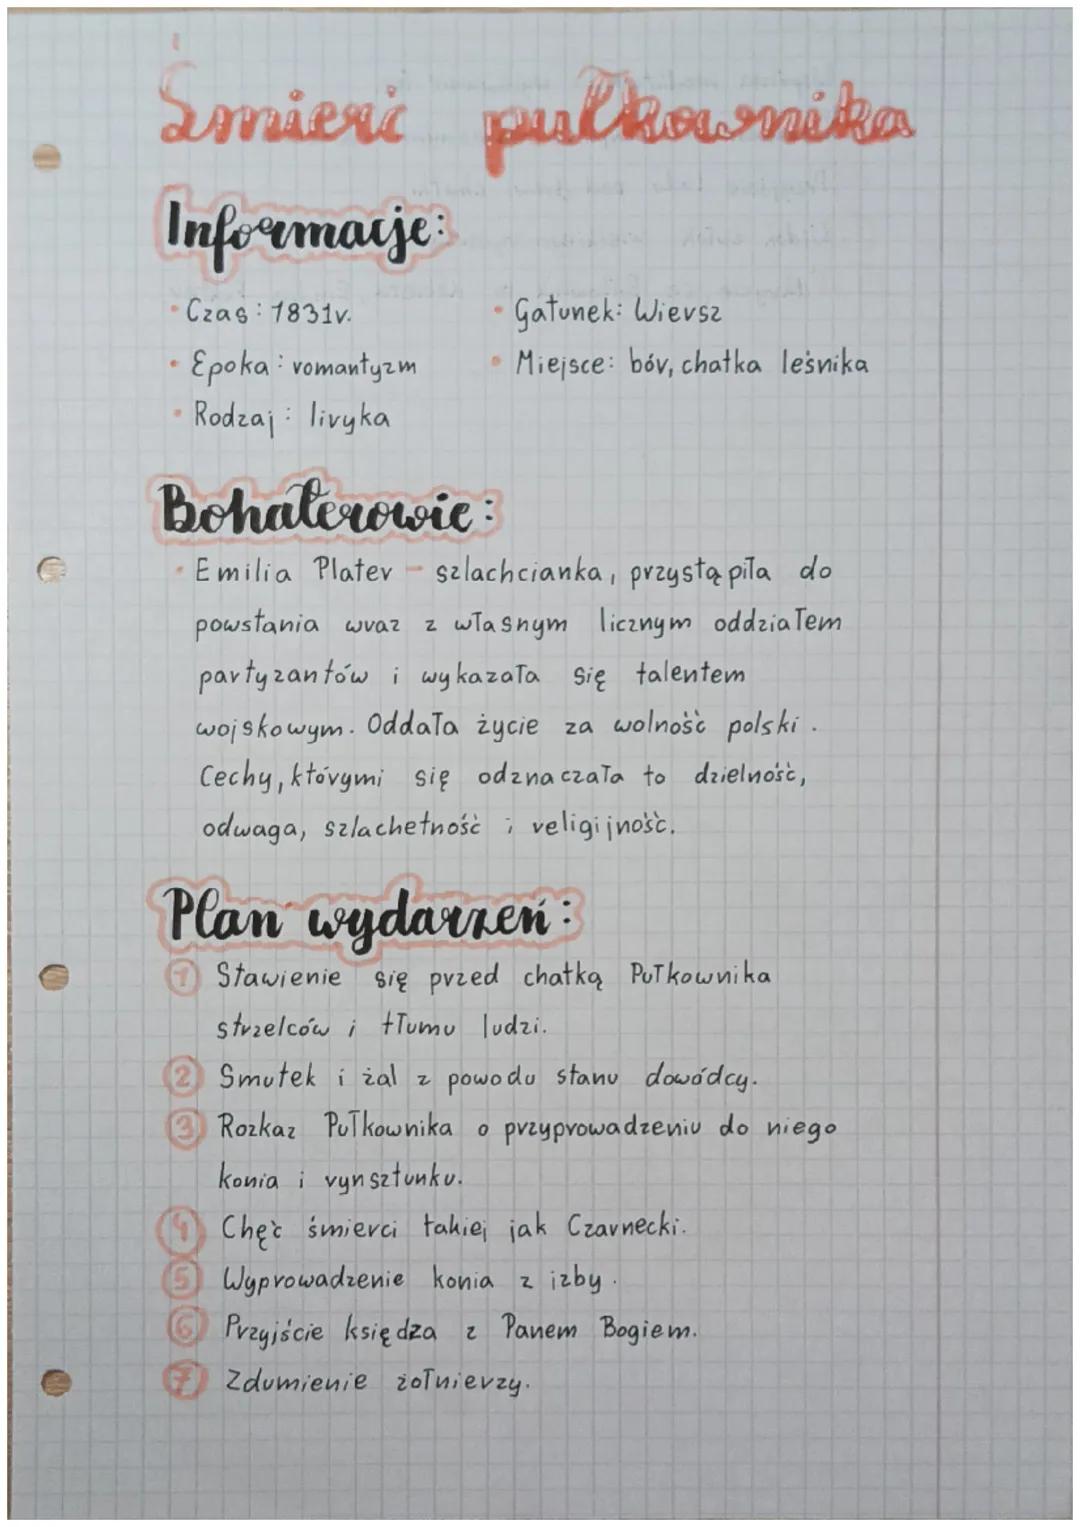 Śmierć pułkownika
Informacje:
• Czas: 1831r.
• Gatunek: Wiersz
• Epoka: romantyzm
• Miejsce: bór, chatka leśnika
• Rodzaj: liryka
Bohaterowie:
• Emilia Plater – szlachcianka, przystąpiła do
powstania wraz z własnym licznym oddziałem
partyzantów i wykazała się talentem
wojskowym. Oddała życie za wolność polski.
Cechy, którymi się odznaczała to dzielność,
odwaga, szlachetność i religijność.
Plan wydarzeń:
1 Stawienie się przed chatką Pułkownika
strzelców i tłumu ludzi.
2 Smutek i żal z powodu stanu dowódcy.
3 Rozkaz Pułkownika o przyprowadzeniu do niego
konia i rynsztunku.
4 Chęć śmierci takiej jak Czarnecki.
5 Wyprowadzenie konia z izby.
6 Przyjście księdza z Panem Bogiem.
7 Zdumienie żołnierzy.